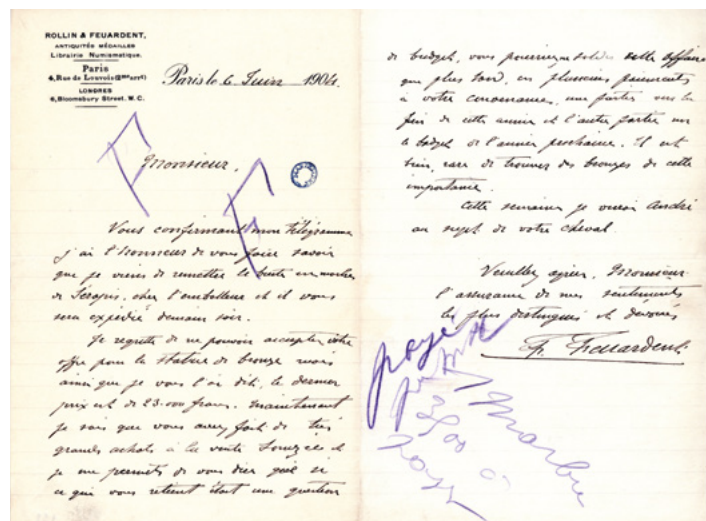 ROLLIN & FEUARDENT,
ANTIQUITÉS MÉDAILLES
Librairie Numismatique.
Paris
4, Rue de Louvois (2me arrt)
LONDRES
6, Bloomsbury Street. W.C.
Paris le 6 Juin 1904.
Monsieur,
Vous confirmant mon télégramme
j'ai l'honneur de vous faire savoir
que je viens de remettre le buste en marbre
de Serapis, chez l'emballeur et il vous
sera expédié demain soir.
Je regrette de ne pouvoir accepter votre
offre pour la statue de bronze mais
ainsi que je vous l'ai dit, le dernier
prix est de 23.000 francs. Maintenant
je sais que vous avez fait de très
grands achats à la vente et
je me permets de vous dire que si
ce qui vous retient était une question
de budget, vous pourriez solder cette affaire
que plus tard, en plusieurs paiements
à votre convenance, une partie vers la
fin de cette année et l'autre partie sur
le budget de l'année prochaine. Il est
bien rare de trouver des bronzes de cette
importance.
Cette semaine je verrai André
au sujet de votre cheval.
Veuillez agréer, Monsieur
l'assurance de mes sentiments
les plus distingués et dévoués
F. Feuardent.
payé
Marbre
3500